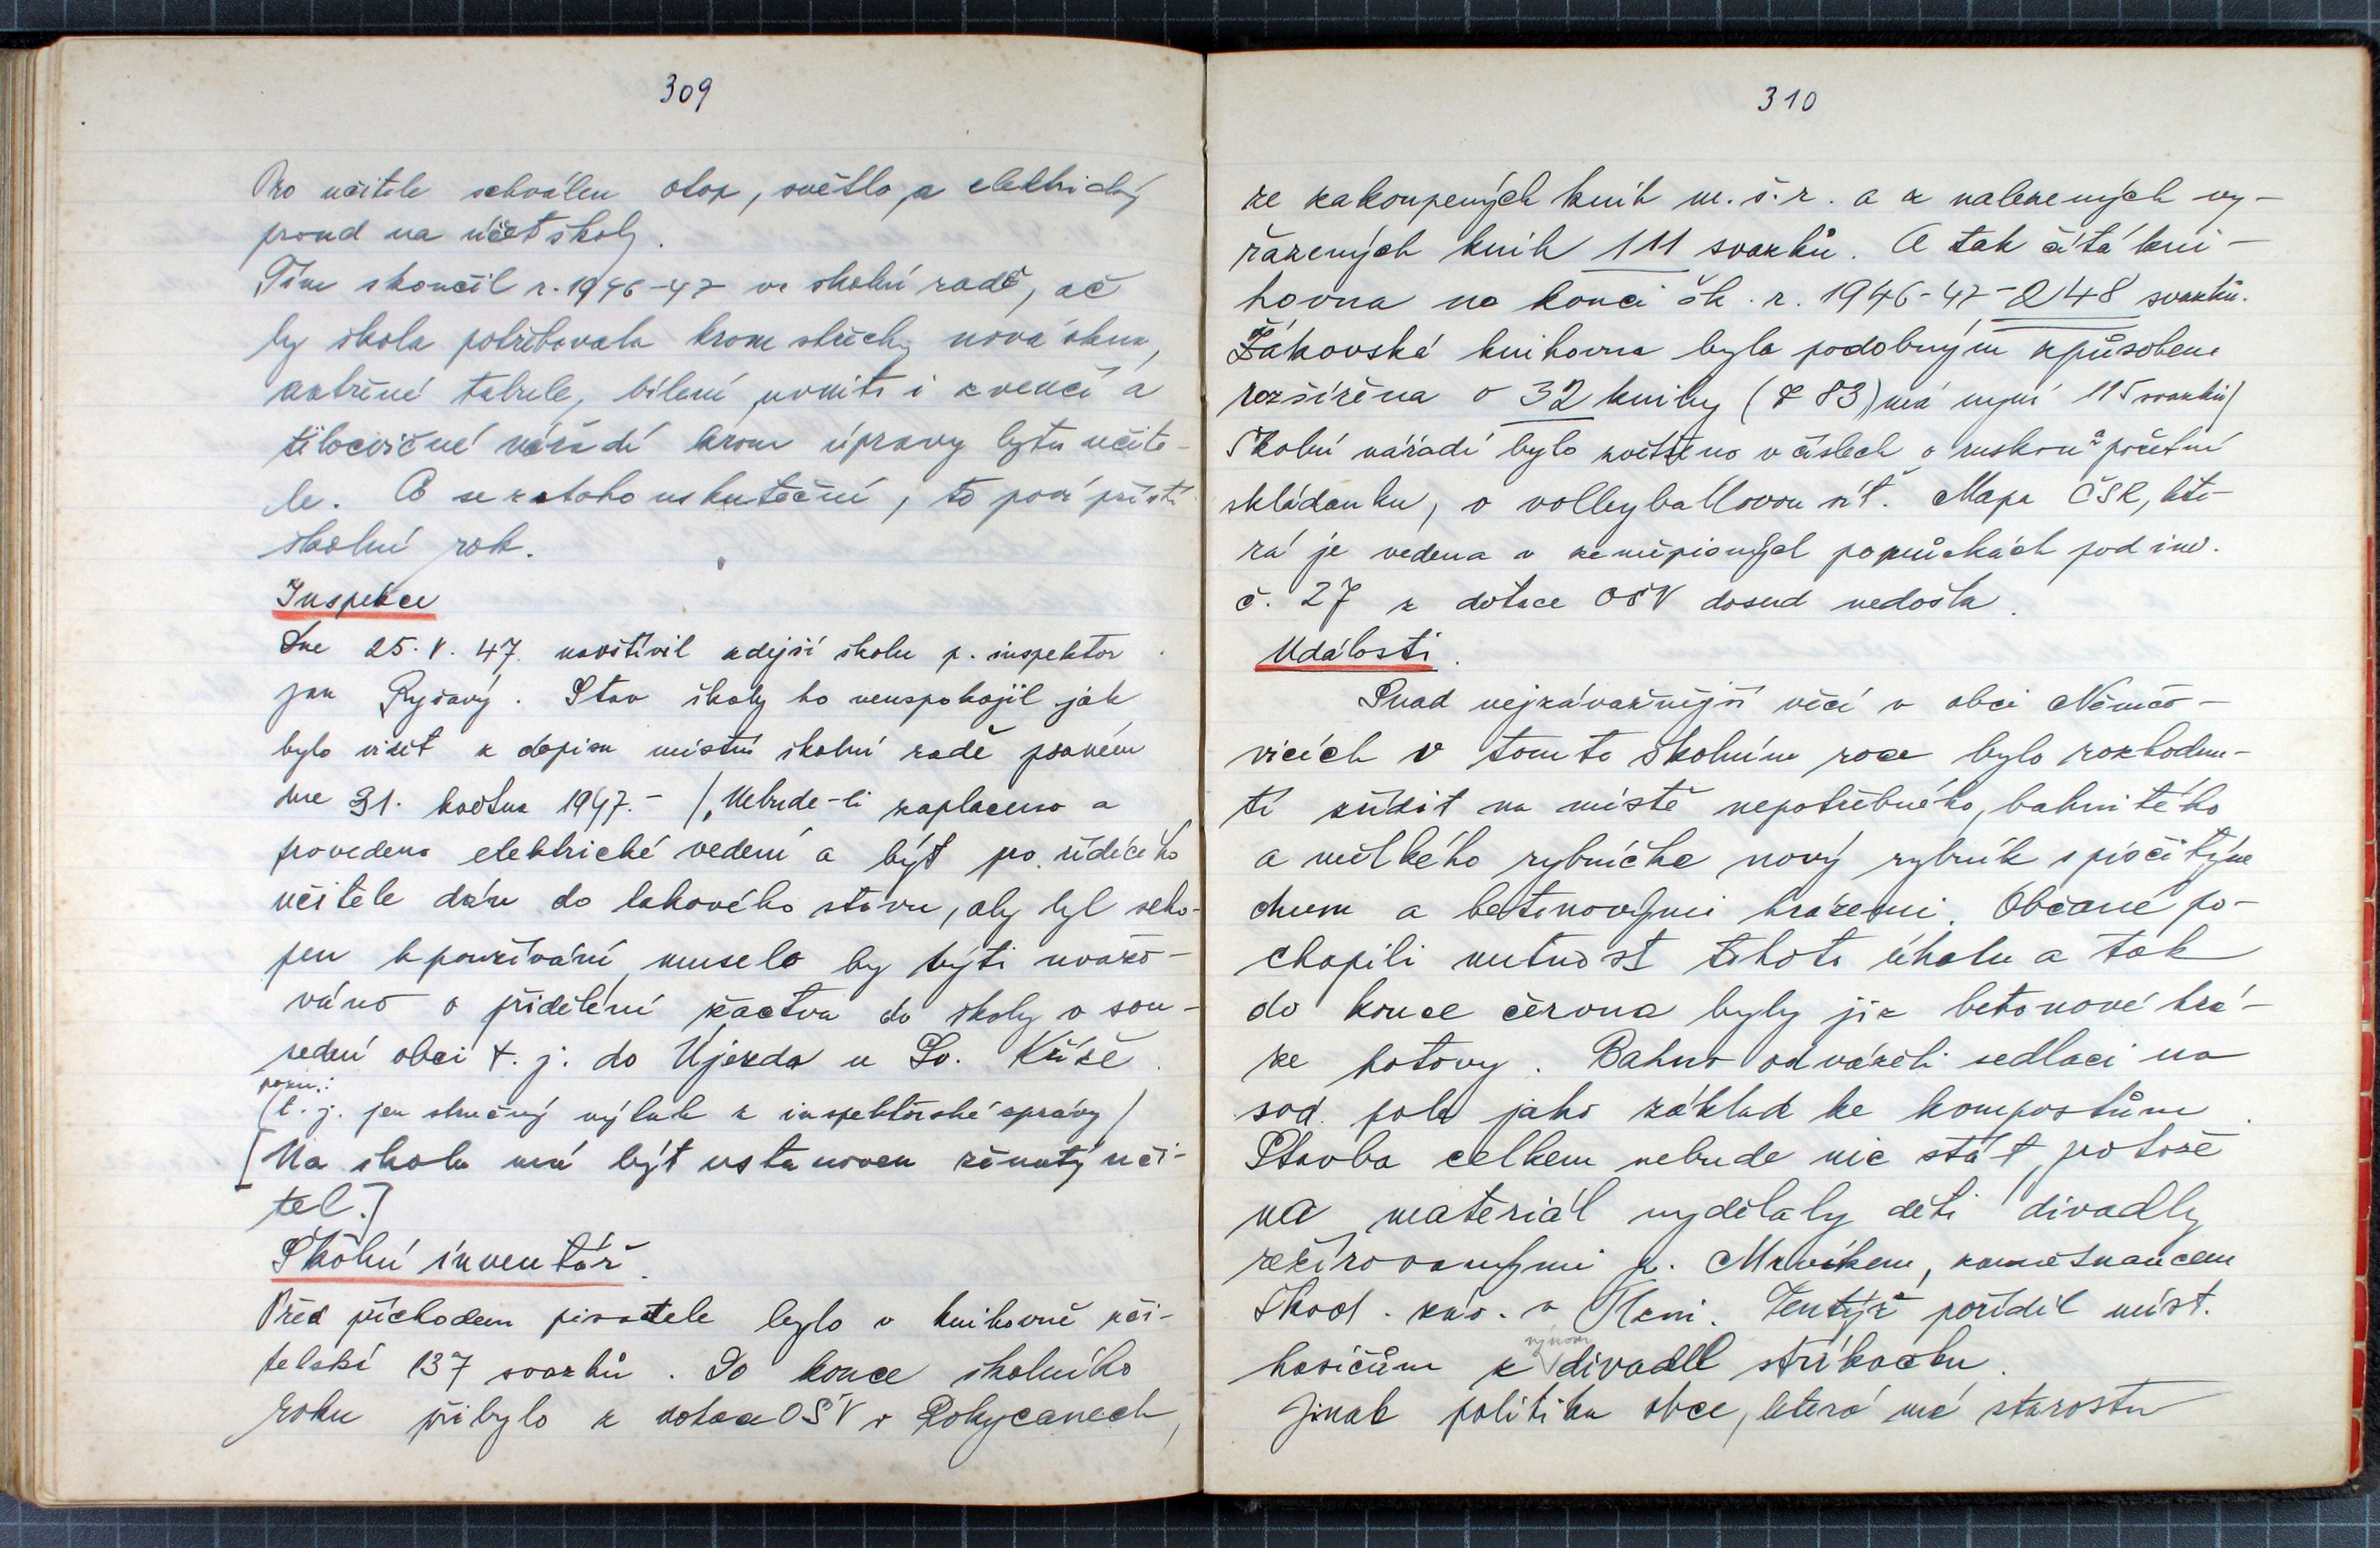 309
Pro učitele schválen otop, světlo, a elektrický
proud na účet školy.
Tím skončil r. 1946-47 ve školní radě, ač
by škola potřebovala krom střechy nová okna,
natření tabule, bílení uvnitř i zvenčí a
tělocvičné nářadí krom úpravy bytu učite-
le. Co se z toho uskuteční, to poví příští
školní rok.
Inspekce
Dne 25. V. 47. navštívil zdejší školu p. inspektor
Jan Ryšavý. Stav školy ho neuspokojil jak
bylo viset z dopisu místní školní radě psaném
dne 31. května 1947. - /„Nebude-li zaplaceno a
provedeno elektrické vedení a byt po řídícího
učitele dán do takového stavu, aby byl scho-
pen k používání, muselo by býti uvažo-
váno o přidělení žactva do školy v sou-
sední obci t. j. do Újezda u Sv. Kříže.
pozn.:
(t. j. jen stručný výtah z inspektorské zprávy/
[Na školu má být ustanoven ženatý uči-
tel.]
Školní inventář.
Před příchodem pisatele bylo v knihovně uči-
telské 137 svazků. Do konce školního
roku přibylo z dotace OŠV v Rokycanech,
310
ze zakoupených knih m. š. r. a z nalezených vy-
řazených knih 111 svazků. A tak čítá kni-
hovna na konci šk. r. 1946-47 - 248 svazků.
Žákovská knihovna byla podobným způsobem
rozšířena o 32 knihy (z 83) má nyní 115 svazků/
Školní nářadí bylo zvětšeno v číslech o ruskou a početní
skládanku, o volleyballovou síť. Mapa ČSR, kte-
rá je vedena v zeměpisných pomůckách pod inv.
č. 27 z dotace OŠV dosud nedošla.
Události.
Snad nejzávažnější věcí v obci Němčo-
vicích v tomto školním roce bylo rozhodnu-
tí zřídit na místě nepotřebného, bahnitého
a mělkého rybníčka nový rybník s písčitým
dnem a betonovými hrázemi. Občané po-
chopili nutnost tohoto úkolu a tak
do konce června byly již betonové hrá-
ze hotovy. Bahno odváželi sedláci na
svá pole jako základ ke kompostům.
Stavba celkem nebude nic stát, protože
na materiál vydělaly děti divadly
režírovanými p. Mrvíkem, zaměstnancem
Škod. záv. v Plzni. Tentýž pořídil míst.
výnosu
hasičům z divadel stříkačku.
Jinak politika obce, která má starostu